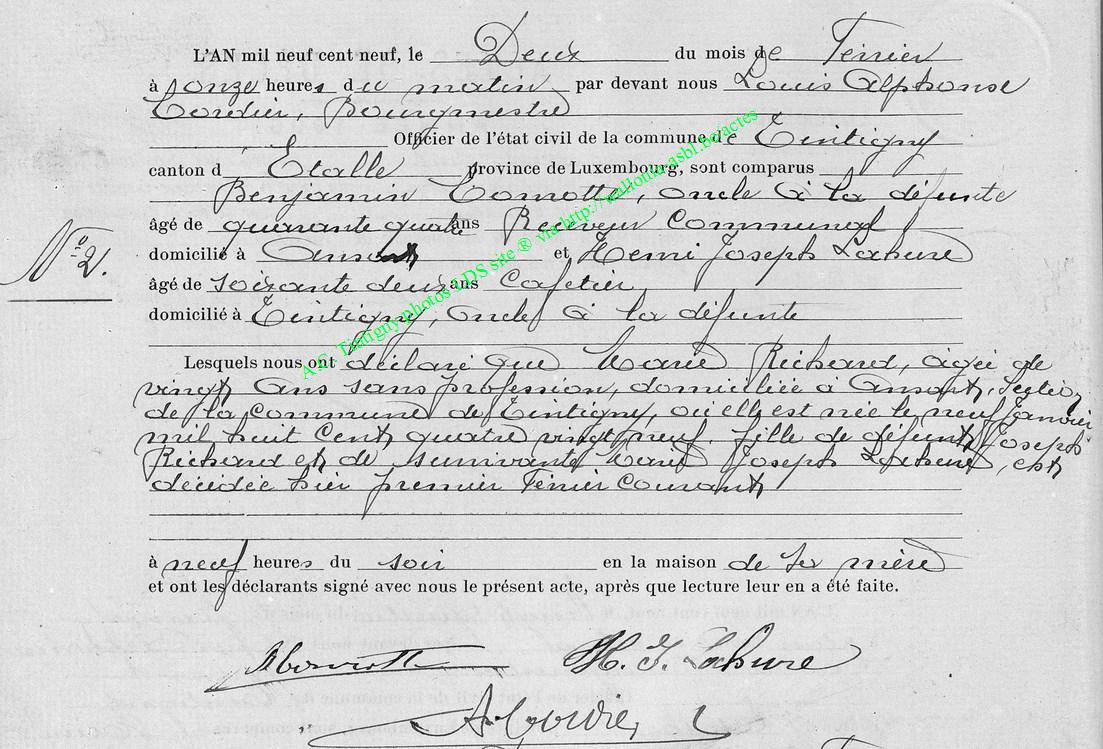 L'AN mil neuf cent neuf, le Deux du mois de Fevrier
à onze heures du matin par devant nous Louis Alphonse
Cordier, Bourgmestre
Officier de l'état civil de la commune de Tintigny
canton d Etalle province de Luxembourg, sont comparus
Benjamin oncle à la défunte
âgé de quarante quatre ans Receveur Communal
domicilié à Ansart et Henri Joseph Lahure
âgé de soixante deux ans Cafetier
domicilié à Tintigny, oncle à la défunte
N° 2.
Lesquels nous ont déclaré que Marie Richard, âgée de
vingt ans sans profession, domiciliée à Ansart, section
de la commune de Tintigny, où elle est née le neuf Janvier
mil huit cent quatre vingt neuf. fille de défunt Joseph
Richard et de survivante Marie Joseph Lahure, est
décédée hier premier Fevrier courant
à neuf heures du soir en la maison de sa mère
et ont les déclarants signé avec nous le présent acte, après que lecture leur en a été faite.
H. J. Lahure
A. Cordier
A.C. Tintigny photos LDS site ® via http://wallonia-asbl.be/actes